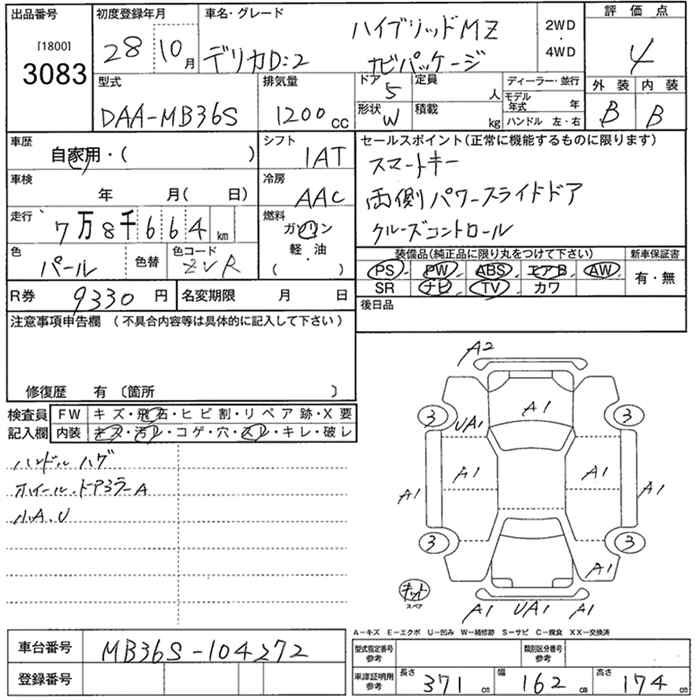 出品番号 初度登録年月 車名・グレード 2WD・4WD 評価点
[1800] 3083 28 10月 デリカD:2 ハイブリッドMZ ナビパッケージ 4
型式 排気量 ドア 5 定員 人 ディーラー・並行 外装 内装
DAA-MB36S 1200cc 形状 W 積載 kg モデル年式 年 B B
ハンドル 左・右
車歴 自家用・( ) シフト 1AT
セールスポイント(正常に機能するものに限ります)
スマートキー
両側パワースライドドア
クルーズコントロール
車検 年 月( 日) 冷房 AAC
走行 7万8千664km 燃料 ガソリン 軽・油 ( )
色 パール 色替 色コード ZVR
装備品(純正品に限り丸をつけて下さい) 新車保証書
PS PW ABS エアB AW 有・無
SR ナビ TV カワ
R券 9330円 名変期限 月 日
後日品
注意事項申告欄(不具合内容等は具体的に記入して下さい)
修復歴 有 〔箇所 〕
検査員記入欄 FW キズ・飛石・ヒビ割・リペア跡・X要
内装 キズ・汚レ・コゲ・穴・スレ・キレ・破レ
ハンドルハゲ
ホイール.ドアミラーA
小A.U
A2
A1
3 3
UA1
A1 A1 A1 A1
3 3
A1
キット
スペア
A1 UA1 A1
A－キズ E－エクボ U－凹み W－補修跡 S－サビ C－腐食 XX－交換済
車台番号 MB36S-104272
型式指定番号 参考 類別区分番号 参考
登録番号
車庫証明用 参考 長さ 371cm 幅 162cm 高さ 174cm